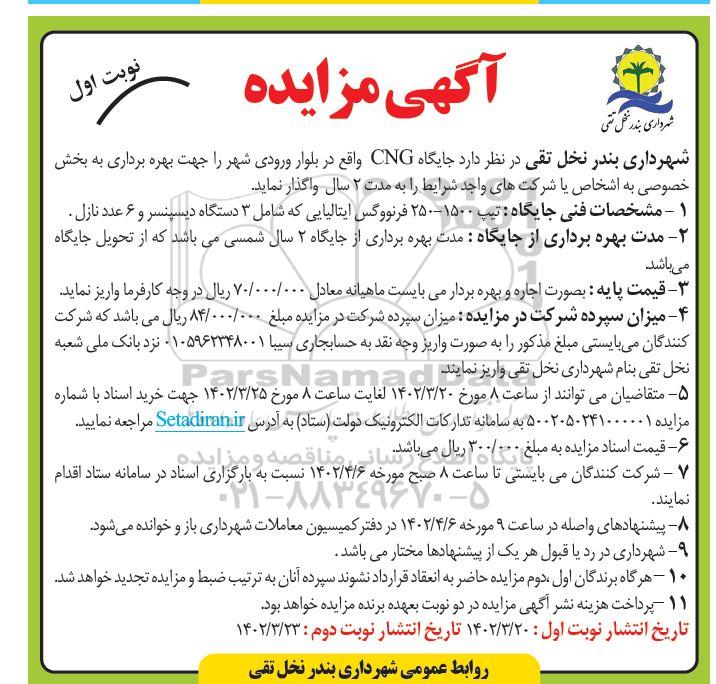 شهرداری بندر نخل تقی
آگهی مزایده
نوبت اول
شهرداری بندر نخل تقی در نظر دارد جایگاه CNG واقع در بلوار ورودی شهر را جهت بهره برداری به بخش
خصوصی به اشخاص یا شرکت های واجد شرایط را به مدت ۲ سال واگذار نماید.
۱ - مشخصات فنی جایگاه : تیپ ۱۵۰۰-۲۵۰ فرنووگس ایتالیایی که شامل ۳ دستگاه دیسپنسر و ۶ عدد نازل .
۲- مدت بهره برداری از جایگاه : مدت بهره برداری از جایگاه ۲ سال شمسی می باشد که از تحویل جایگاه
می‌باشد.
۳- قیمت پایه : بصورت اجاره و بهره بردار می بایست ماهیانه معادل ۷۰/۰۰۰/۰۰۰ ریال در وجه کارفرما واریز نماید.
۴- میزان سپرده شرکت در مزایده : میزان سپرده شرکت در مزایده مبلغ ۸۴/۰۰۰/۰۰۰ ریال می باشد که شرکت
کنندگان می‌بایستی مبلغ مذکور را به صورت واریز وجه نقد به حسابجاری سیبا ۰۱۰۵۹۶۲۳۴۸۰۰۱ نزد بانک ملی شعبه
نخل تقی بنام شهرداری نخل تقی واریز نمایند.
ParsNamadData
۵- متقاضیان می توانند از ساعت ۸ مورخ ۱۴۰۲/۳/۲۰ لغایت ساعت ۸ مورخ ۱۴۰۲/۳/۲۵ جهت خرید اسناد با شماره
مزایده ۵۰۰۲۰۵۰۲۴۱۰۰۰۰۰۱ به سامانه تدارکات الکترونیک دولت (ستاد) به آدرس Setadiran.ir مراجعه نمایید.
۶- قیمت اسناد مزایده به مبلغ ۳۰۰/۰۰۰ ریال می‌باشد.
پایگاه اطلاع رسانی مناقصه و مزایده
۷ - شرکت کنندگان می بایستی تا ساعت ۸ صبح مورخه ۱۴۰۲/۴/۶ نسبت به بارگزاری اسناد در سامانه ستاد اقدام
نمایند.
۰۲۱-۸۸۳۴۹۶۷۰-۵
۸- پیشنهادهای واصله در ساعت ۹ مورخه ۱۴۰۲/۴/۶ در دفتر کمیسیون معاملات شهرداری باز و خوانده می‌شود.
۹- شهرداری در رد یا قبول هر یک از پیشنهادها مختار می باشد .
۱۰ -هرگاه برندگان اول ،دوم مزایده حاضر به انعقاد قرارداد نشوند سپرده آنان به ترتیب ضبط و مزایده تجدید خواهد شد.
۱۱ -پرداخت هزینه نشر آگهی مزایده در دو نوبت بعهده برنده مزایده خواهد بود.
تاریخ انتشار نوبت اول : ۱۴۰۲/۳/۲۰ تاریخ انتشار نوبت دوم : ۱۴۰۲/۳/۲۳
روابط عمومی شهرداری بندر نخل تقی